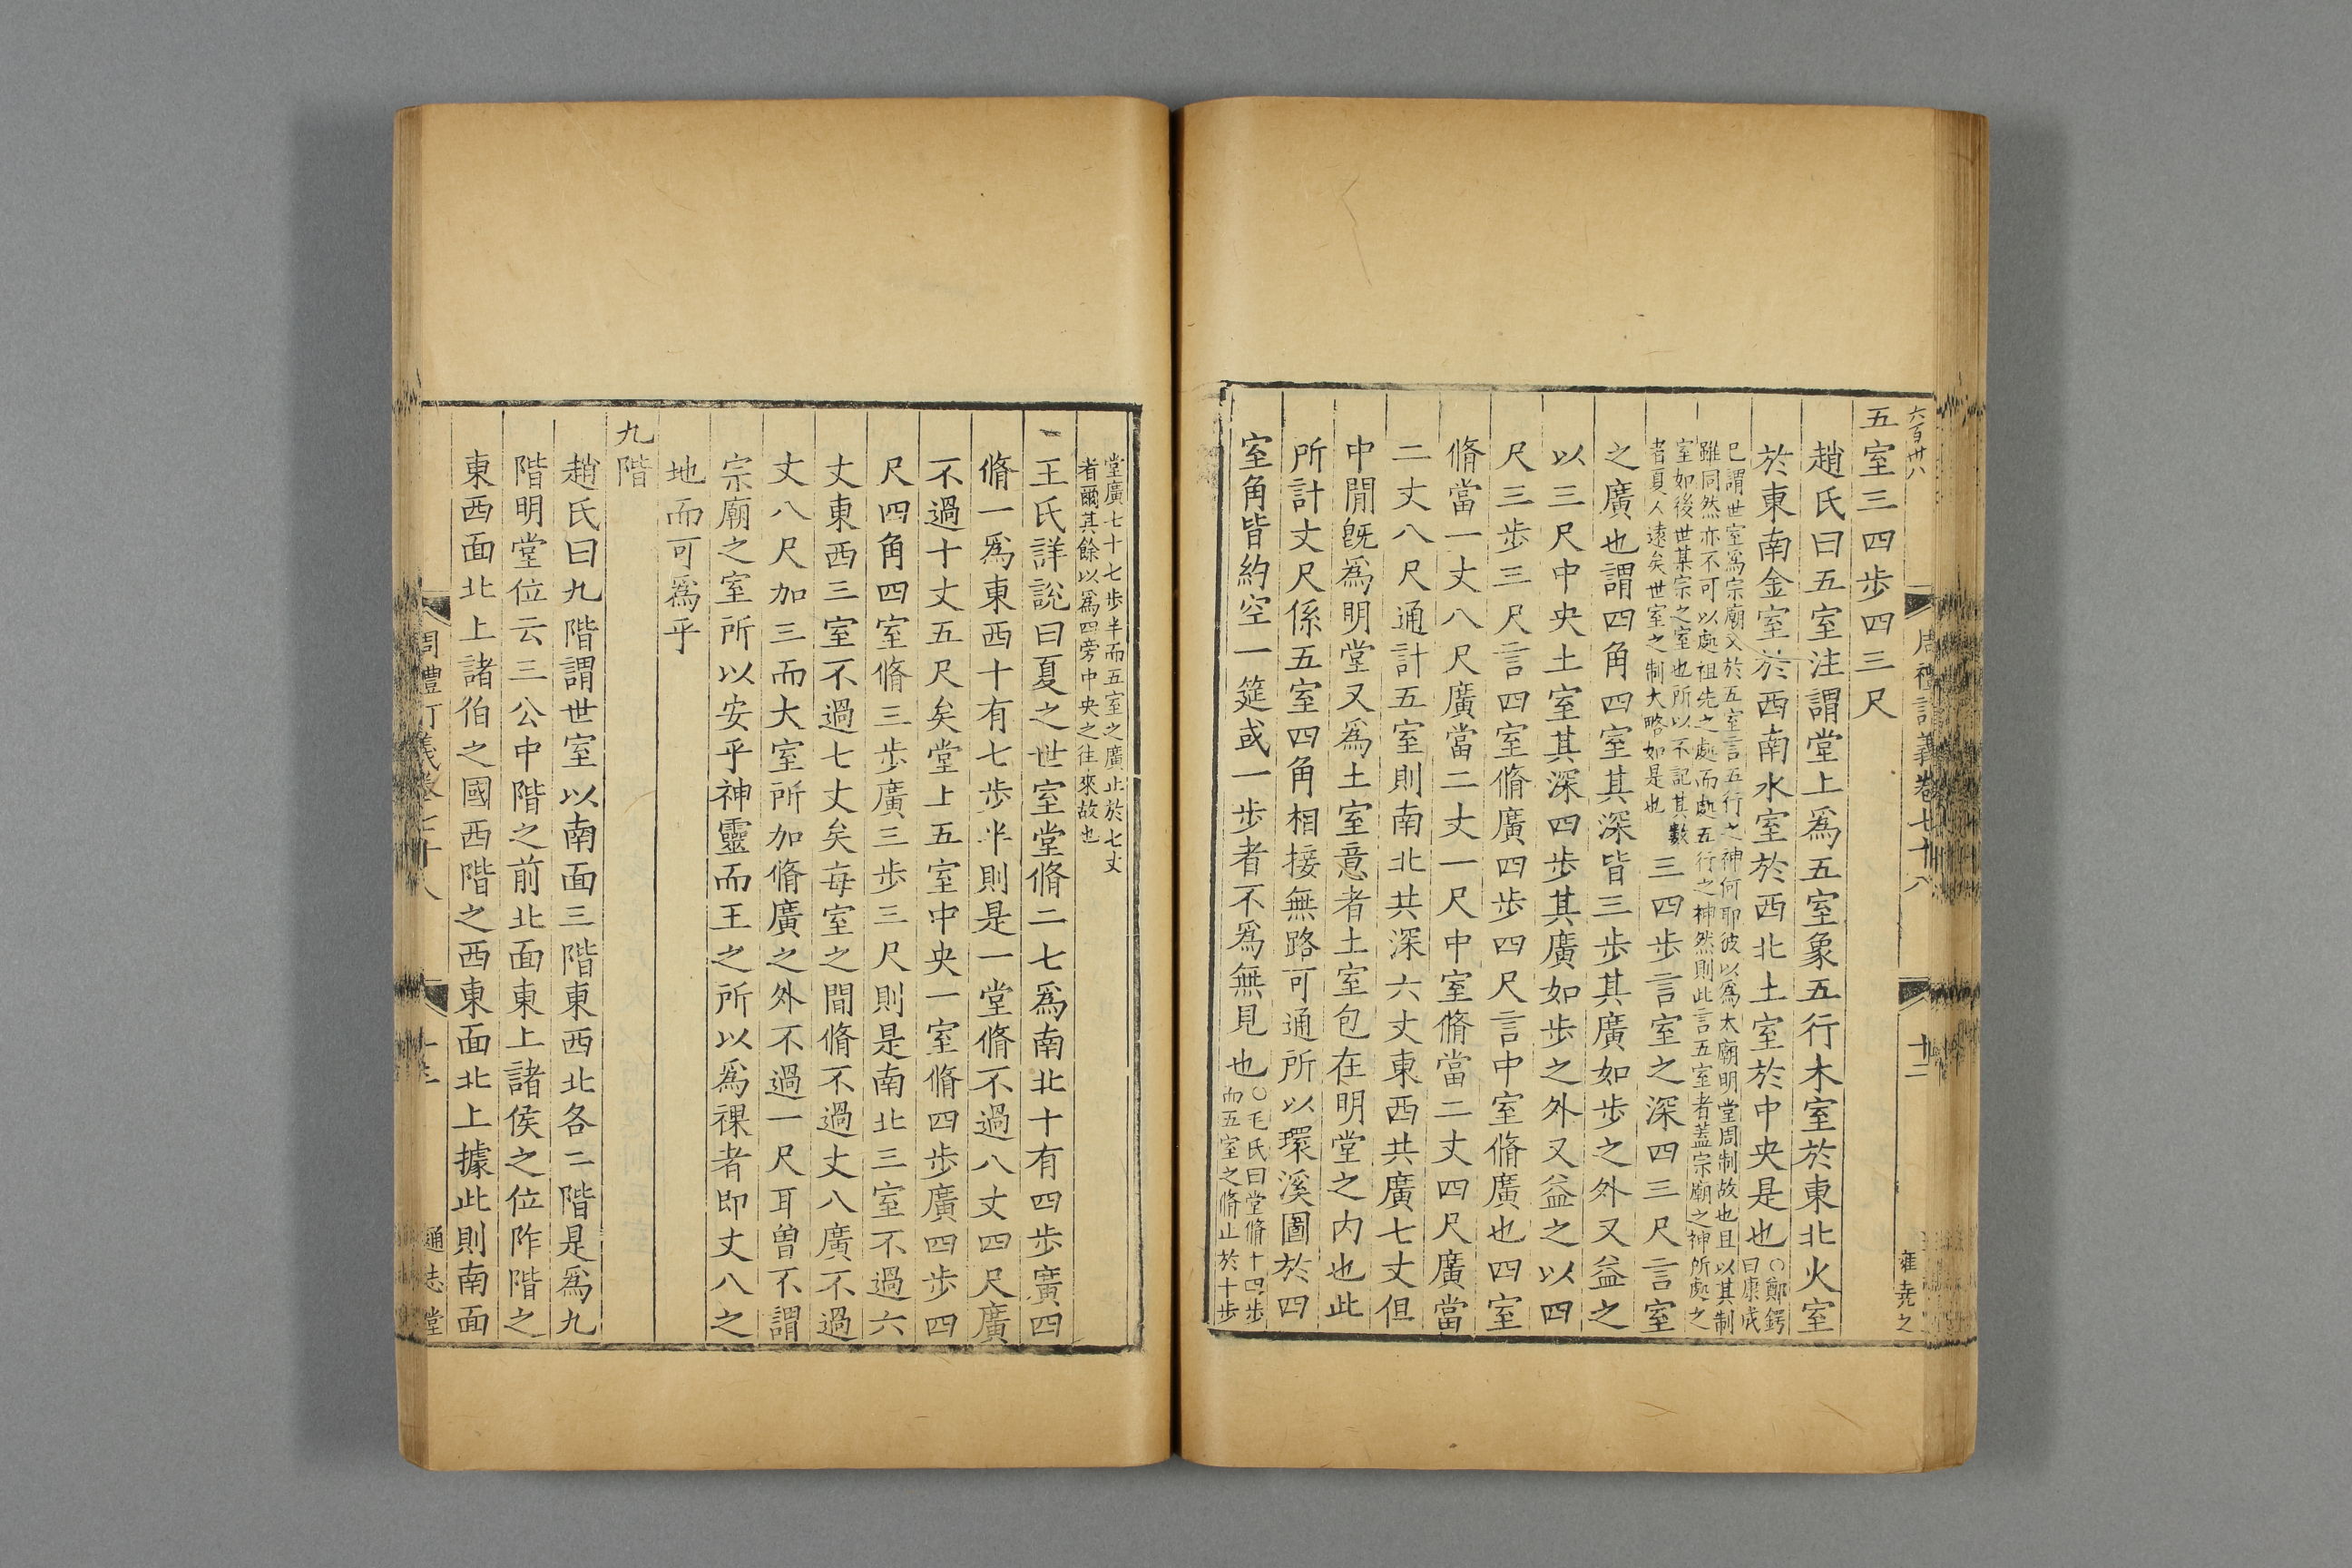 六百卅八
周禮訂義卷七十八
十二
雍堯之
五室三四步四三尺
趙氏曰五室注謂堂上爲五室象五行木室於東北火室
於東南金室於西南水室於西北土室於中央是也〇鄭鍔
曰康成
已謂世室爲宗廟又於五室言五行之神何耶彼以爲太廟明堂周制故也且以其制
雖同然亦不可以處祖先之處而處五行之神然則此言五室者蓋宗廟之神所處之
室如後世某宗之室也所以不記其數
者夏人遠矣世室之制大略如是也
三四步言室之深四三尺言室
之廣也謂四角四室其深皆三步其廣如步之外又益之
以三尺中央土室其深四步其廣如步之外又益之以四
尺三步三尺言四室脩廣四步四尺言中室脩廣也四室
脩當一丈八尺廣當二丈一尺中室脩當二丈四尺廣當
二丈八尺通計五室則南北共深六丈東西共廣七丈但
中間旣爲明堂又爲土室意者土室包在明堂之内也此
所計丈尺係五室四角相接無路可通所以環溪圖於四
室角皆約空一筵或一步者不爲無見也〇毛氏曰堂脩十四步
而五室之脩止於十步
堂廣七十七步半而五室之廣止於七丈
者爾其餘以爲四旁中央之往來故也
王氏詳說曰夏之世室堂脩二七爲南北十有四步廣四
脩一爲東西十有七步半則是一堂脩不過八丈四尺廣
不過十丈五尺矣堂上五室中央一室脩四步廣四步四
尺四角四室脩三步廣三步三尺則是南北三室不過六
丈東西三室不過七丈矣每室之間脩不過丈八廣不過
丈八尺加三而大室所加脩廣之外不過一尺耳曾不謂
宗廟之室所以安乎神靈而王之所以爲祼者即丈八之
地而可爲乎
九階
趙氏曰九階謂世室以南面三階東西北各二階是爲九
階明堂位云三公中階之前北面東上諸侯之位阼階之
東西面北上諸伯之國西階之西東面北上據此則南面
周禮訂義卷七十八
通志堂